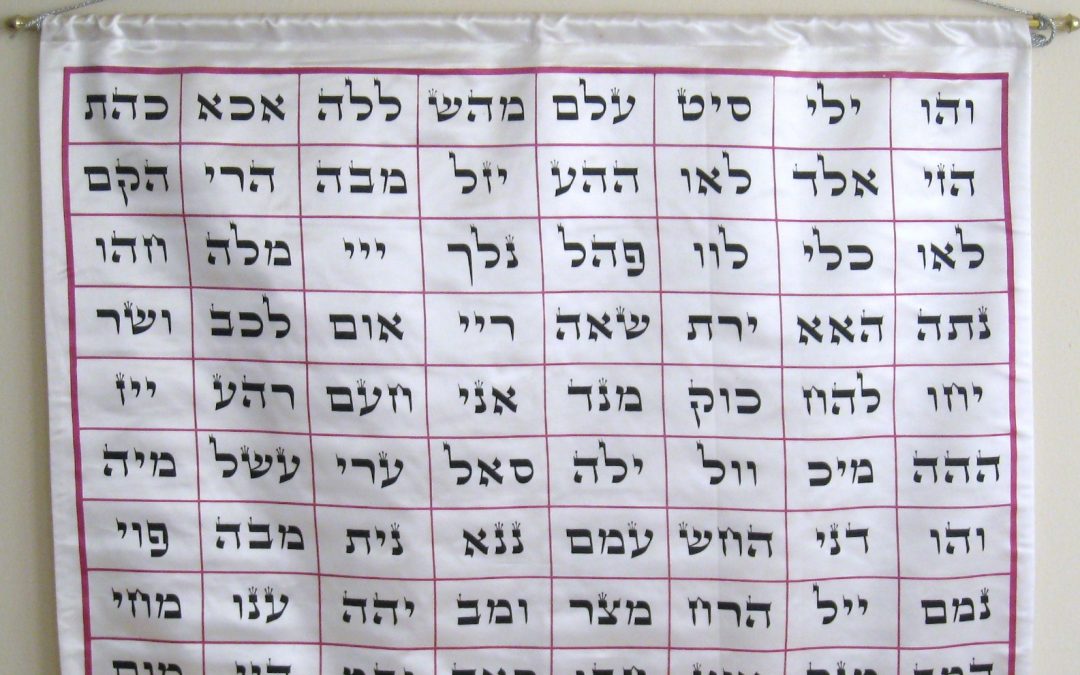 והו ילי סיט עלם מהש ללה אכא כהת
הזי אלד לאו ההע יזל מבה הרי הקם
לאו כלי לוו פהל נלך ייי מלה חהו
נתה האא ירת שאה ריי אום לכב ושר
יחו להח כוק מנד אני חעם רהע ייז
ההה מיכ וול ילה סאל ערי עשל מיה
והו דני החש עמם ננא נית מבה פוי
נמם ייל הרח מצר ומב יהה ענו מחי